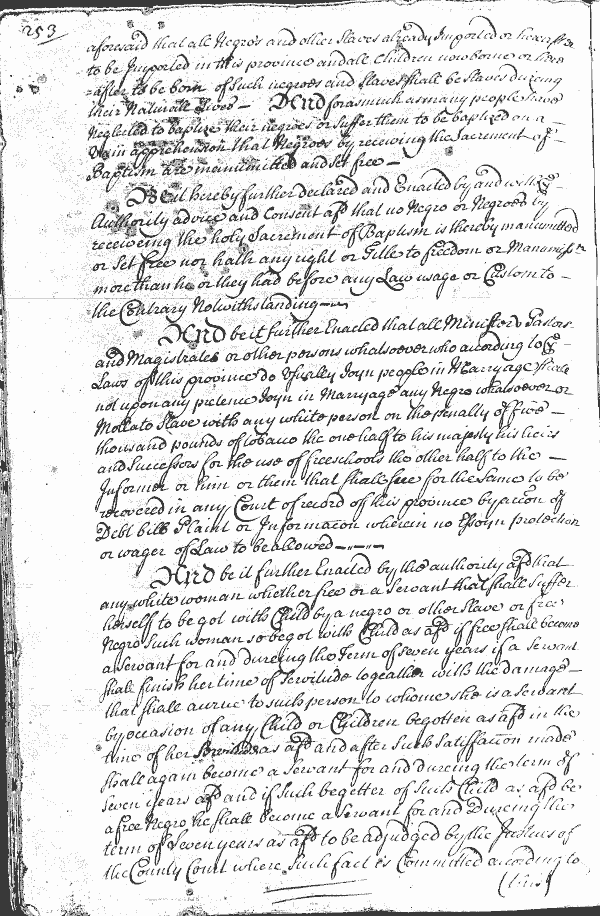 253
aforesaid that all Negros and other Slaves already Imported or hereafter
to be Imported in this province and all Children now borne or here
-after to be born of such negroes and Slaves shall be Slaves dureing
their Naturall Lives — And forasmuch as many people have
Neglected to baptize their negroes or Suffer them to be baptized on a
Vain apprehension that Negroes by receiving the Sacrement of
Baptism are manumitted and set free —
Be it hereby further declared and Enacted by and with ye
Authority advice and Consent afd that no Negro or Negroes by
receiveing the holy Sacrement of Baptism is thereby manumitted
or Set free nor hath any right or Title to freedom or Manumissn
more than he or they had before any Law usage or Custom to —
the Contrary Notwithstanding
And be it further Enacted that all Ministers Pastors
and Magistrates or other persons whatsoever who according to ye
Laws of this province do Usually Joyn people in Marryage shall
not upon any pretence Joyn in Marryage any Negro whatsoever or
Mollato Slave with any white person on the penalty of five —
thousand pounds of tobaco the one half to his majesty his heirs
and Successors for the use of free schools the other half to the —
Informer or him or them that shall sue for the same to be
recovered in any Court of record of this province by accon of
Debt bill Plaint or Informacon wherein no Essoyn protection
or wager of Law to be allowed
And be it further Enacted by the authority afd that
any white woman whether free or a Servant that shall Suffer
herself to be got with Child by a negro or other Slave or free
Negro Such woman so begot with Child as afd if free shall become
a servant for and dureing the Term of seven years if a Servant
shall finish her time of Servitude together with the damage —
that shall accrue to such person to whome she is a servant
by occasion of any Child or Children begotten as afd in the
time of her Servitude as afd and after Such Satisfaccon made
shall again become a Servant for and dureing the term of
Seven years afd and if such begetter of such Child as afd be
a free Negro he shall become a servant for and Dureing the
term of Seven years as afd to be adjudged by the Justices of
the County Court where Such fact is Committed according to